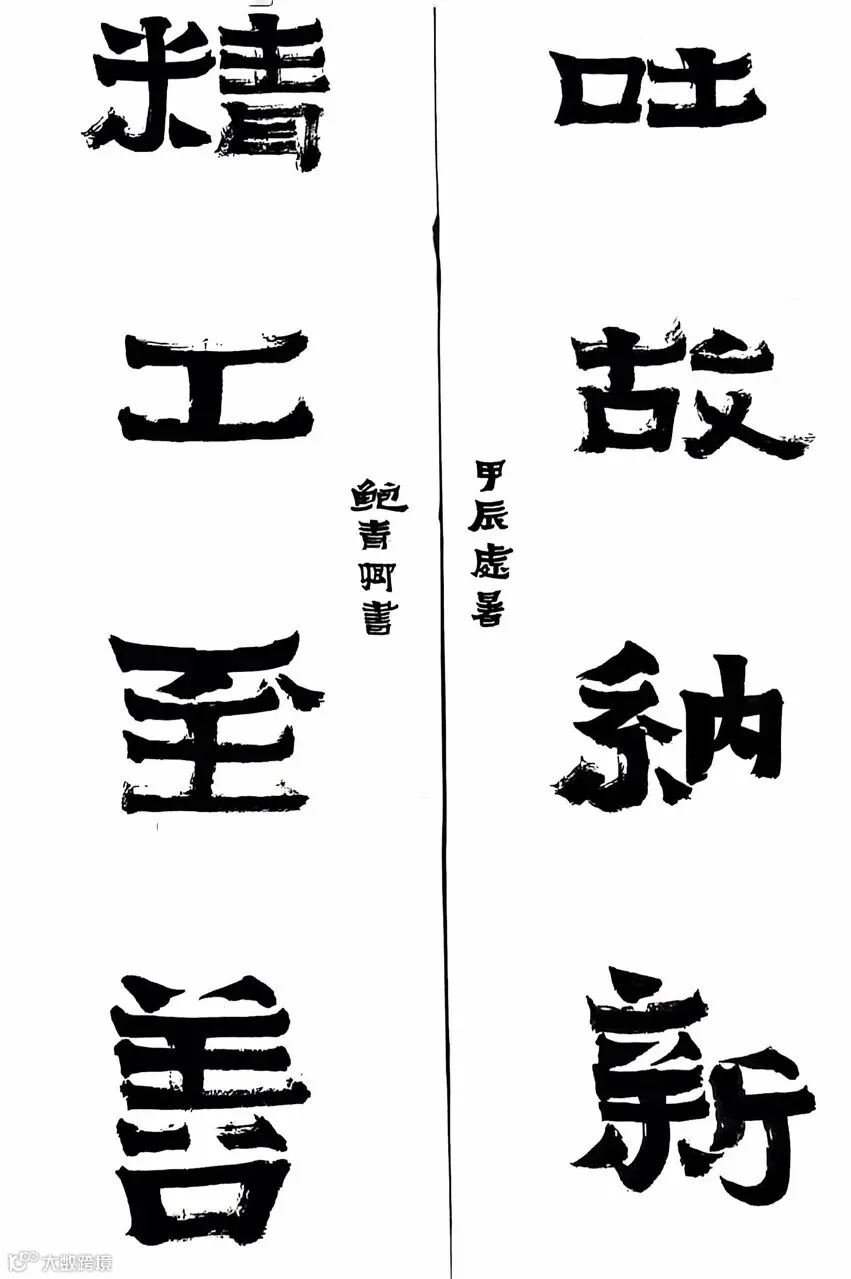 吐故納新
甲辰處暑
精工至善
鮑青卿書
大数跨境